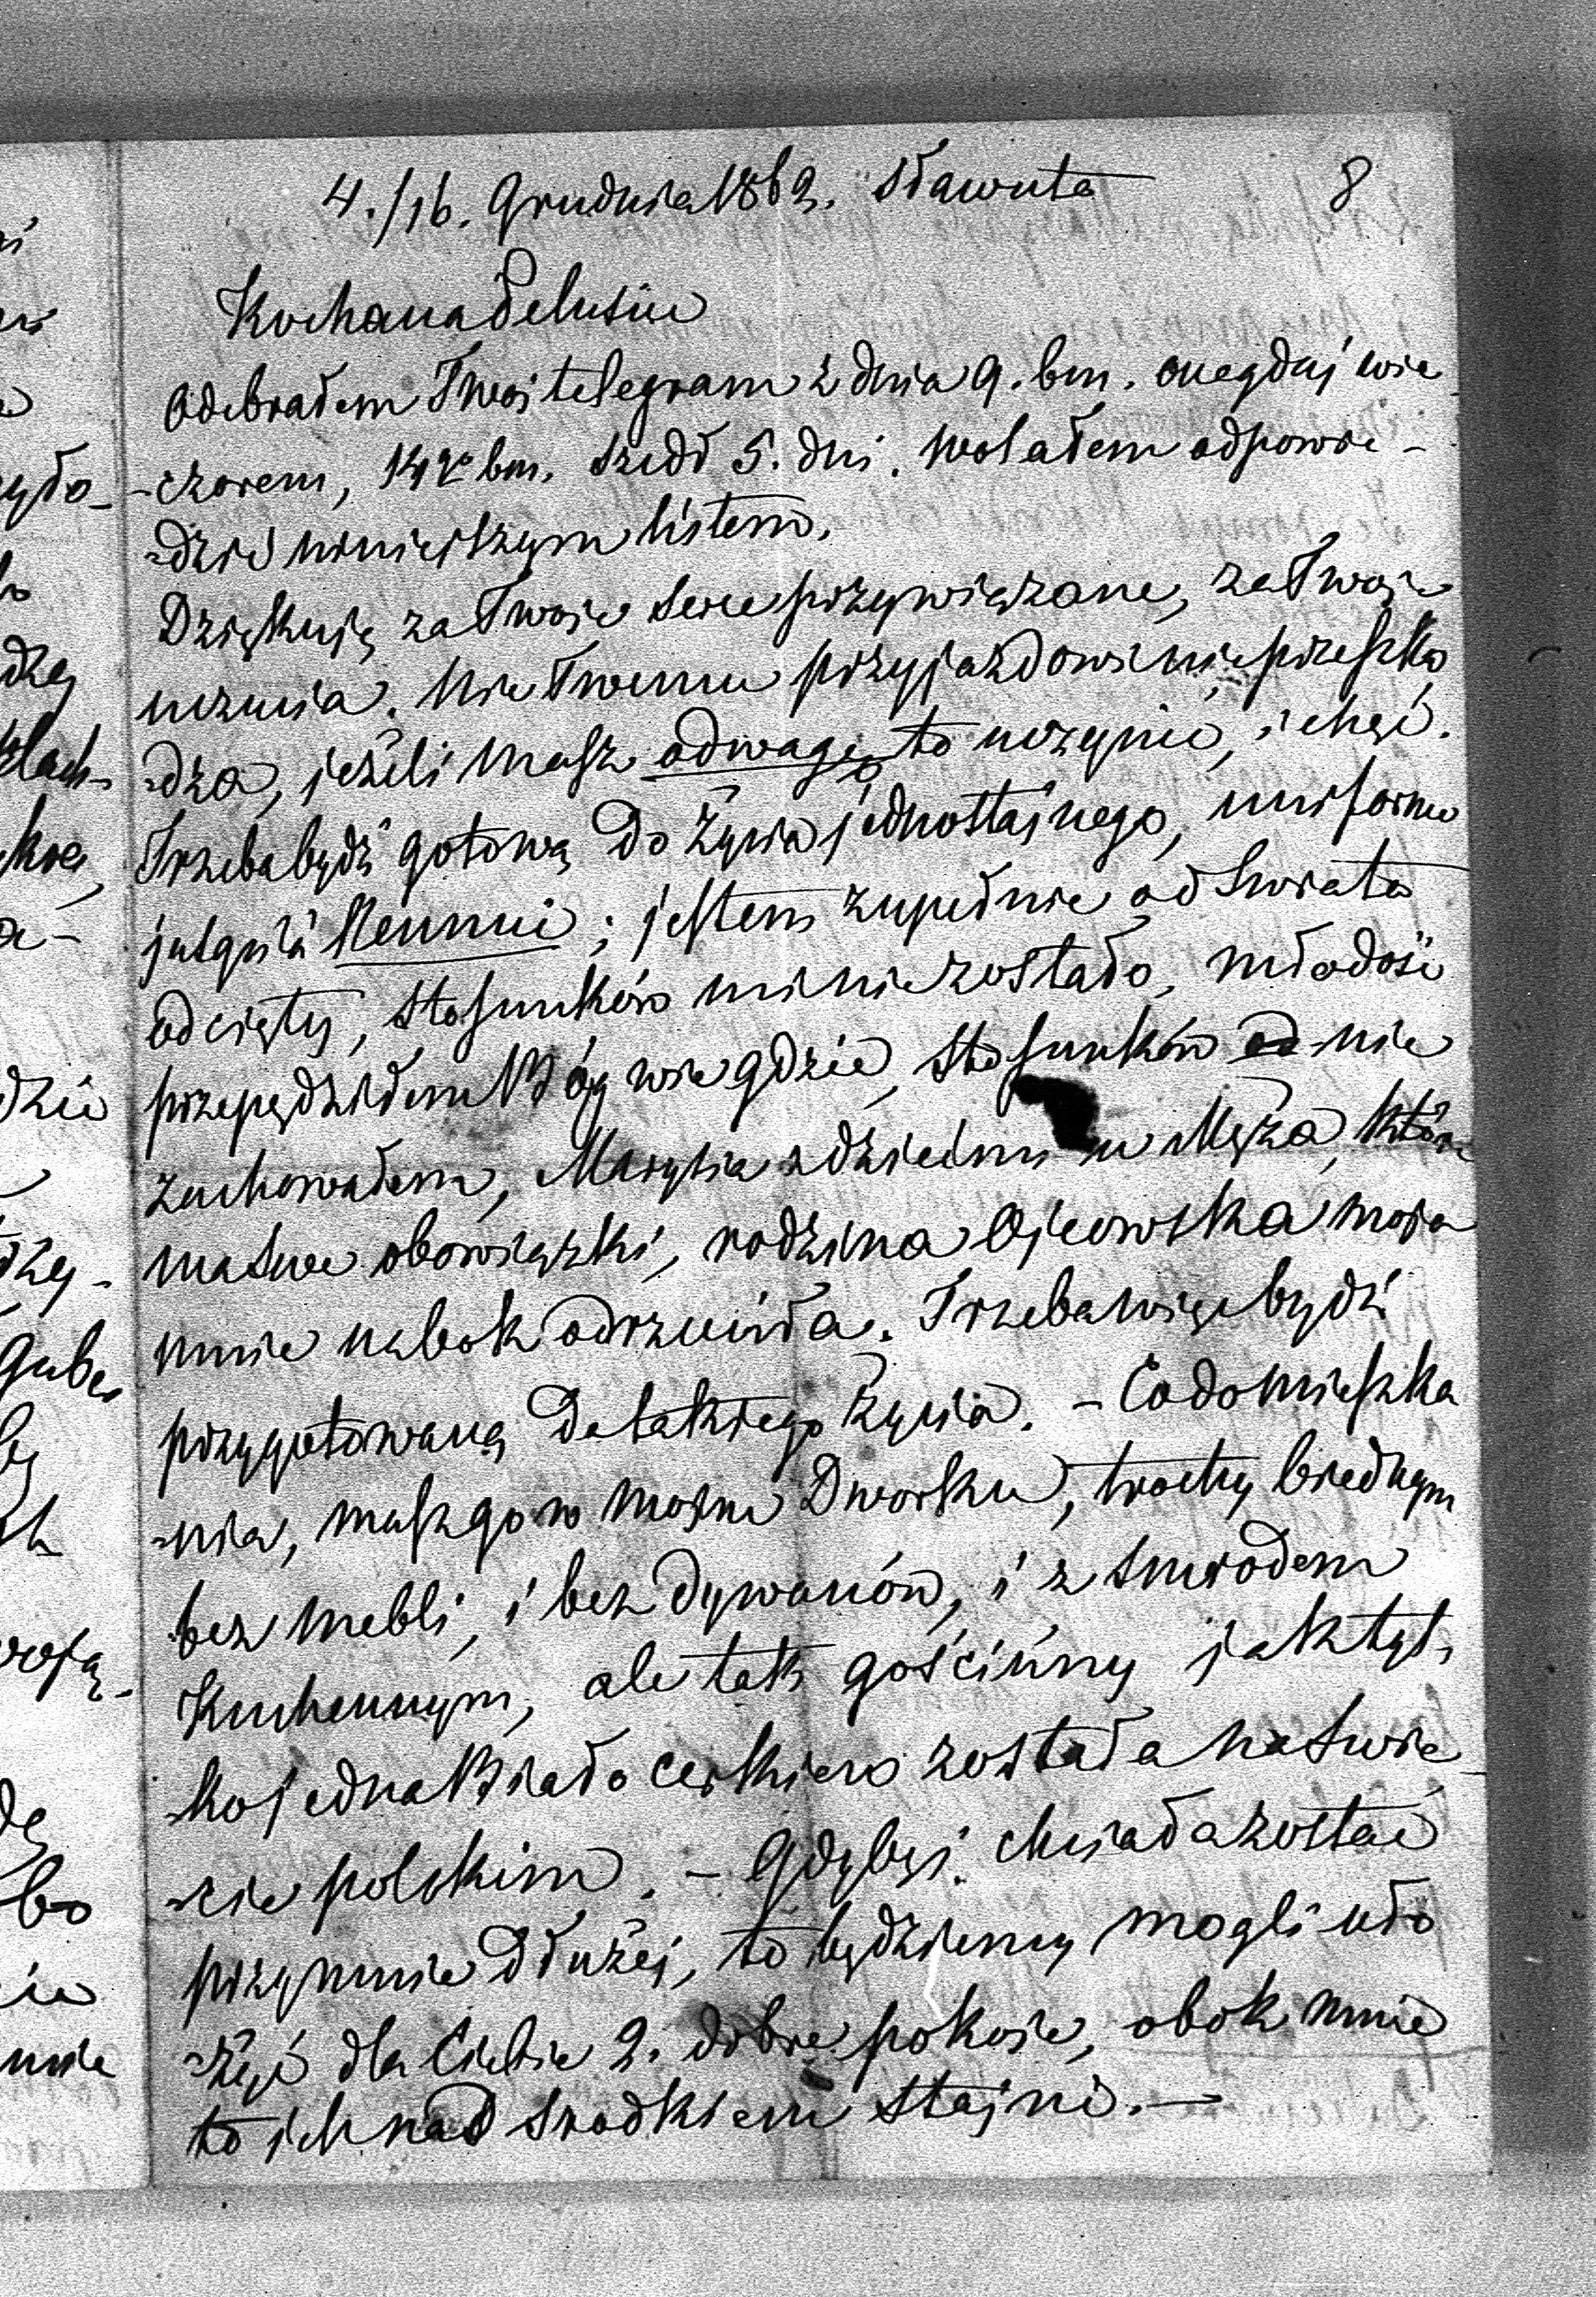 4./16. Grudnia 1869. Sławuta 8
Kochana Delusiu
Odebrałem Twoj telegram z dnia 9. bm. onegdaj wie
-czorem, 14go bm. szedł 5. dni. Wolałem odpowie-
-dzieć niniejszym listem.
Dziękuję za Twoje serce przywiązane, za Twoje
uczucia. Nie Twemu przyjazdowi nie przeszka
-dza, jeżeli masz odwagę to uczynić, i chęć.
Trzeba bydź gotową do życia jednostajnego, uniforme
jusqu'à l'ennui; jestem zupełnie od świata
odcięty, stosunków mi nie zostało, młodość
przepędziłem Bóg wie gdzie, stosunków nie
zachowałem, Marysia z dziećmi u Męża, które
ma swe obowiązki, rodzina Ojcowska moja
mnie na bok odrzuciła. Trzeba więc bydź
przygotowaną do takiego życia. - Co do mieszka
-nia, masz go w moim Dworku, trochę biednym
bez mebli, i bez dywanów, i z smrodem
kuchennym, ale tak gościnny jak tyl,
-ko jedna Biało cerkiew została na świe-
-cie polskim. - Gdybyś chciała zostać
przy mnie dłużej, to będziemy mogli uło
-żyć dla Ciebie 2. dobre pokoje, obok mnie
to jich nad środkiem stajni. -
dzey
kre,
a-
dzie
Guber
by
bo